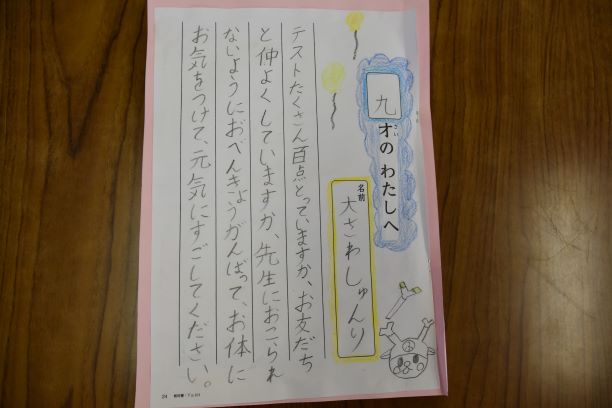 九才のわたしへ
さい
名前
大さわしゅんり
テストたくさん百点とっていますか、お友だち
と仲よくしていますか、先生におこられ
ないようにおべんきょうがんばって、お体に
お気をつけて、元気にすごしてください。
24